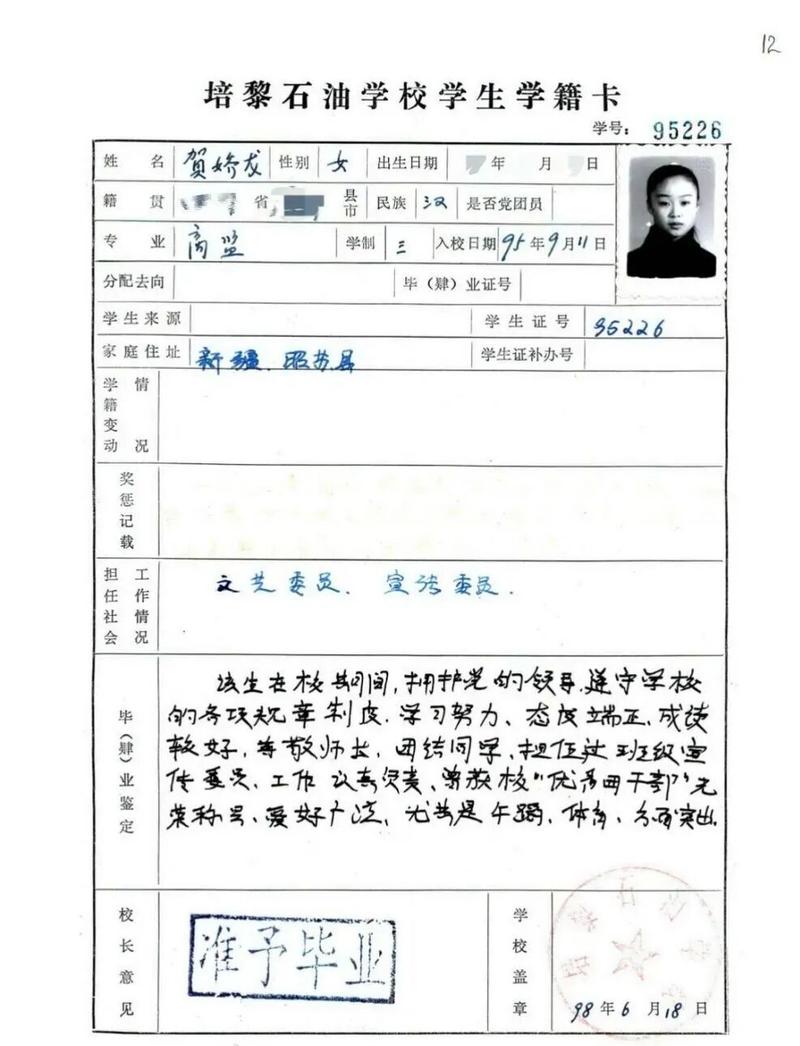 12
培黎石油学校学生学籍卡
学号: 95226
姓名 贺娇龙 性别 女 出生日期 年 月 日
籍贯 省 县市 民族 汉 是否党团员
专业 商监 学制 三 入校日期 95年9月11日
分配去向 毕(肄)业证号
学生来源 学生证号 95226
家庭住址 新疆、昭苏县 学生证补办号
学籍变动情况
奖惩记载
担任社会工作情况 文艺委员、宣传委员.
毕(肄)业鉴定
该生在校期间,拥护党的领导,遵守学校
的各项规章制度.学习努力、态度端正.成绩
较好,尊敬师长,团结同学,担任过班级宣
传委员、工作认真负责、曾获校"优秀团干部"光
荣称号、爱好广泛、尤其是午蹈、体育、方面突出.
校长意见 准予毕业 学校盖章
98年6月18日